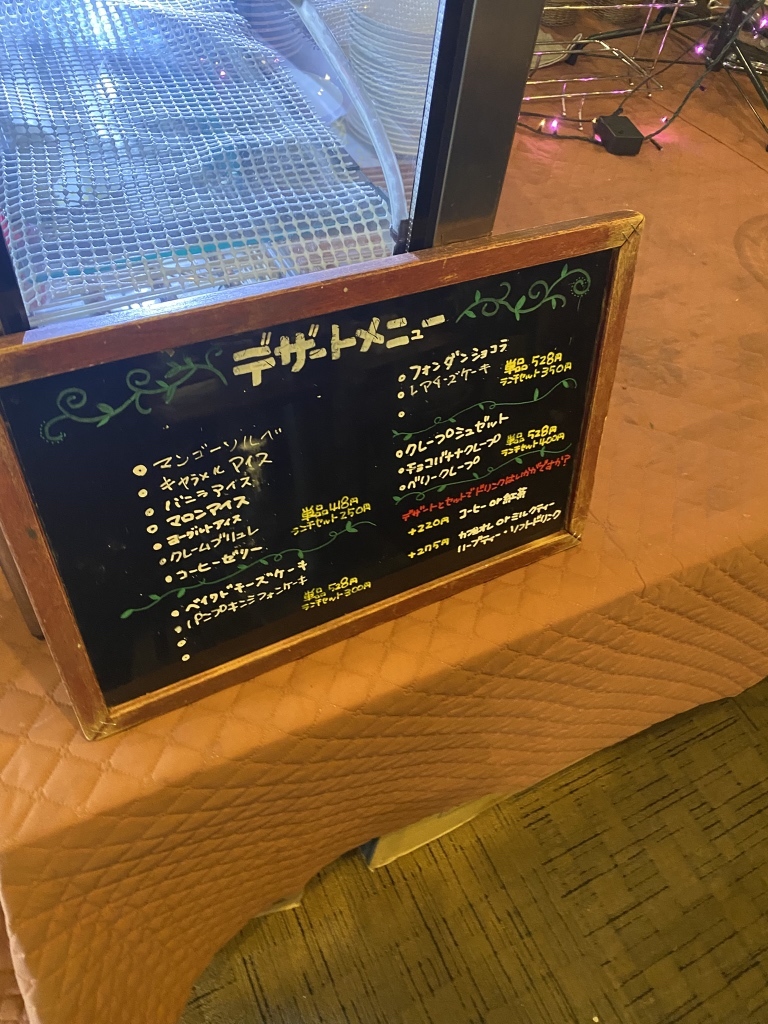 デザートメニュー
マンゴーソルベ
キャラメルアイス
バニラアイス
マロンアイス
ヨーグルトアイス
クレームブリュレ
コーヒーゼリー
単品418円
ランチセット250円
ベイクドチーズケーキ
パンプキンシフォンケーキ
単品528円
ランチセット300円
フォンダンショコラ
レアチーズケーキ
単品528円
ランチセット350円
クレープシュゼット
チョコバナナクレープ
ベリークレープ
単品528円
ランチセット400円
デザートとセットでドリンクはいかがですか?
+220円 コーヒーor紅茶
+275円 カフェオレorミルクティー
ハーブティー・ソフトドリンク